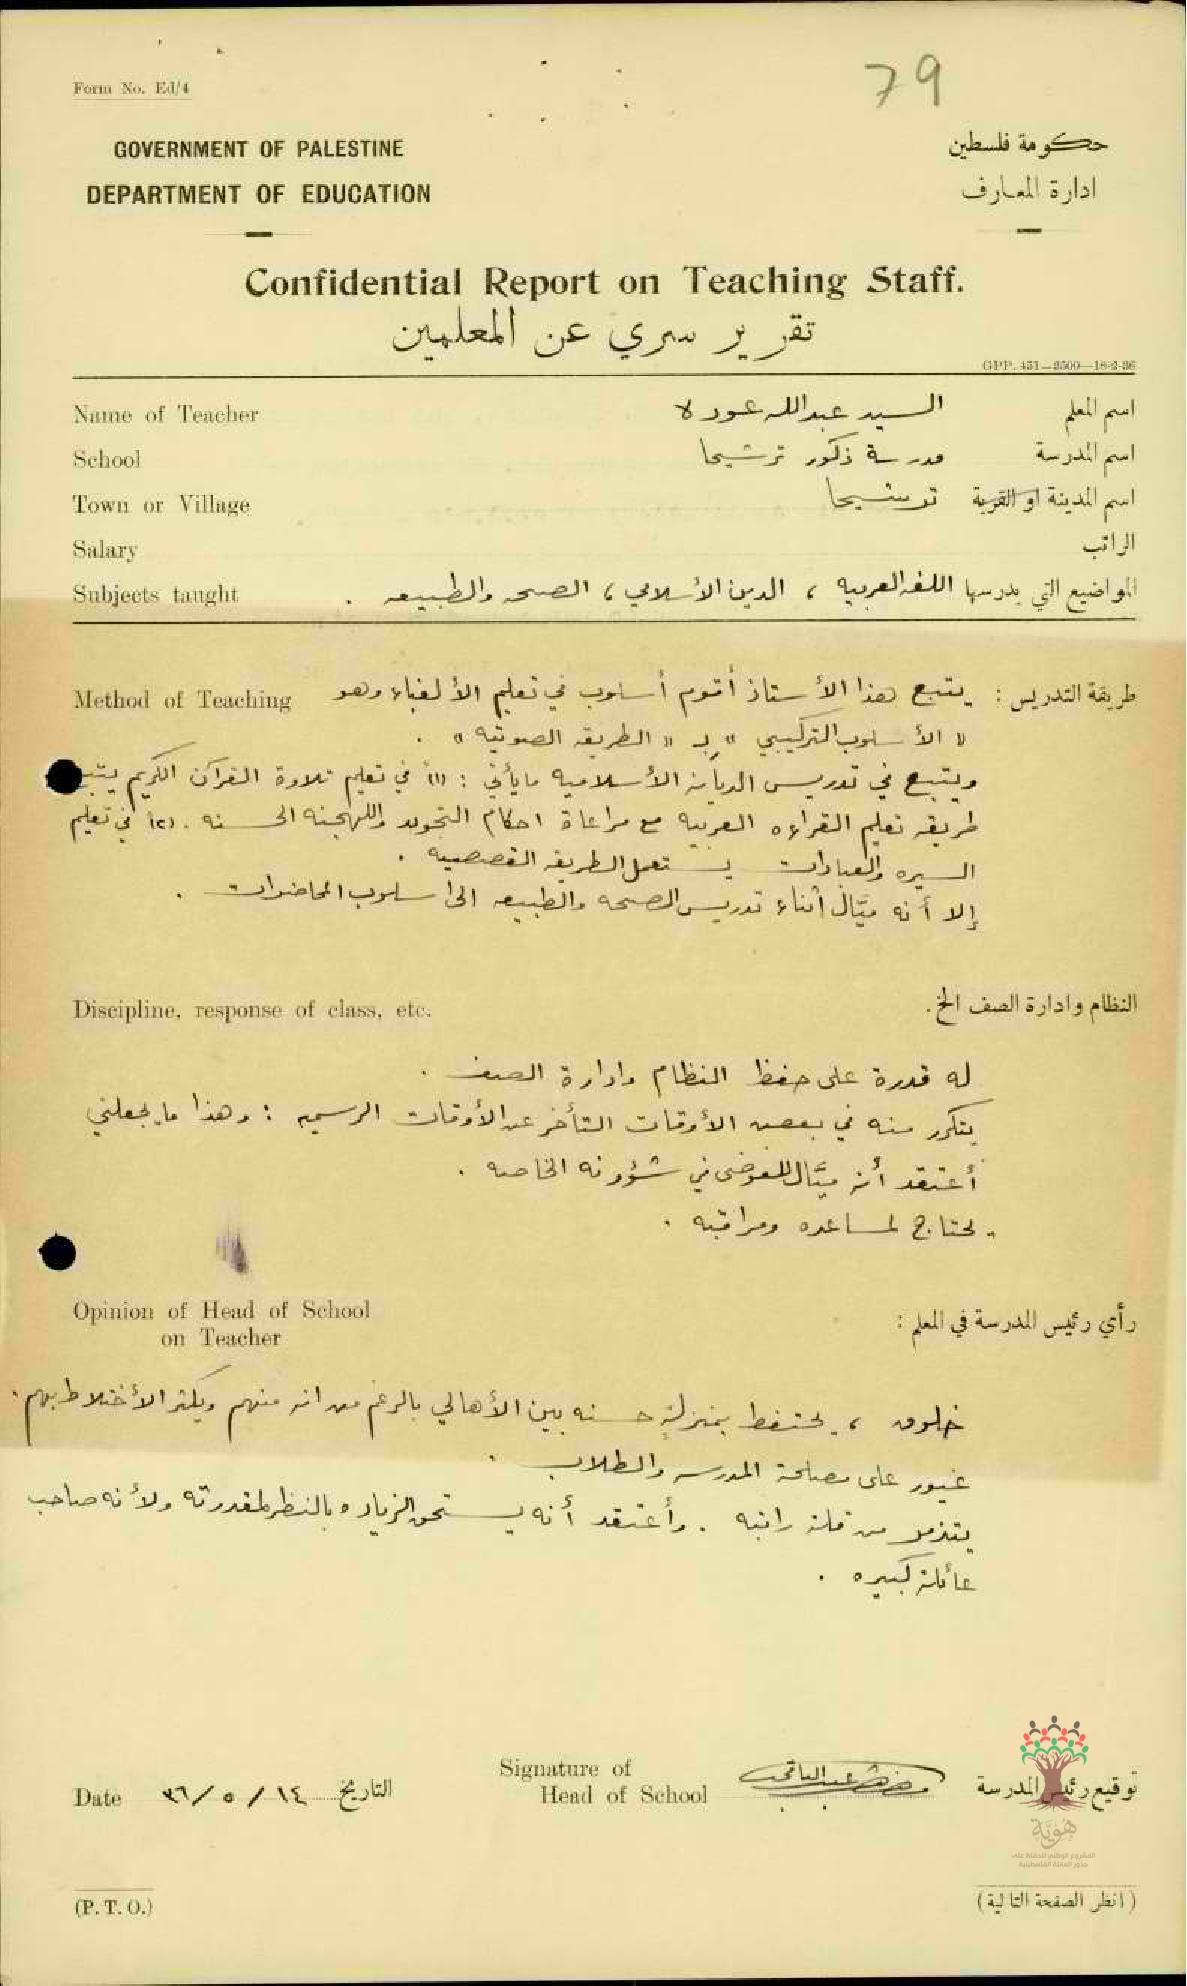 79
Form No. Ed/4
GOVERNMENT OF PALESTINE
حكومة فلسطين
DEPARTMENT OF EDUCATION
ادارة المعارف
Confidential Report on Teaching Staff.
تقرير سري عن المعلمين
GPP. 451—3500—18-2-36
Name of Teacher السيد عبدالله عوده اسم المعلم
School مدرسة ذكور ترشيحا اسم المدرسة
Town or Village ترشيحا اسم المدينة او القرية
Salary الراتب
Subjects taught المواضيع التي يدرسها اللغه العربيه ، الدين الأسلامي ، الصحه والطبيعه .
Method of Teaching طريقة التدريس : يتبع هذا الأستاذ أقوم أسلوب في تعليم الألفباء وهو
« الأسلوب التركيبي » بـ « الطريقه الصوتيه » .
ويتبع في تدريس الديانه الأسلاميه ما يأتي : (١) في تعليم تلاوة القرآن الكريم يتبع
طريقه تعليم القراءه العربيه مع مراعاة احكام التجويد واللهجه الحسنه . (٢) في تعليم
السيره والعبادات يستعمل الطريقه القصصيه .
إلا أنه ميّال أثناء تدريس الصحه والطبيعه الى اسلوب المحاضرات .
Discipline, response of class, etc. النظام وادارة الصف الخ.
له قدرة على حفظ النظام وادارة الصف .
يتكرر منه في بعض الأوقات التأخر عن الأوقات الرسميه : وهذا ما يجعلني
أعتقد أنه ميّال للفوضى في شؤونه الخاصه .
يحتاج لمساعده ومراقبه .
Opinion of Head of School
on Teacher
رأي رئيس المدرسة في المعلم :
خلوق ، يحتفظ بمنزلةٍ حسنه بين الأهالي بالرغم من انه منهم ويكثر الأختلاط بهم .
غيور على مصلحة المدرسه والطلاب .
يتذمر من قلة راتبه . وأعتقد أنه يستحق الزياده بالنظر لمقدرته ولأنه صاحب
عائلة كبيره .
Signature of
Head of School
توقيع رئيس المدرسة
Date ١٤ / ٥ / ٣٦ التاريخ
هوية
المشروع الوطني للحفاظ على
جذور العائلة الفلسطينية
(P. T. O.)
( انظر الصفحة التالية )